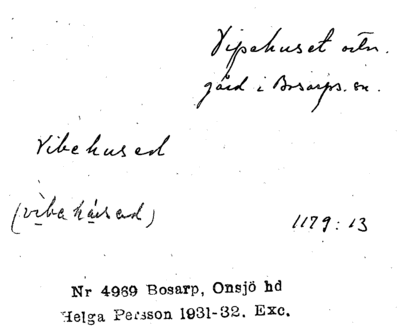 Vipehuset ortn.
gård i Bosarps sn.
Vibehused
(vibehused)
1179:13
Nr 4969 Bosarp, Onsjö hd
Helga Persson 1931-32. Exc.